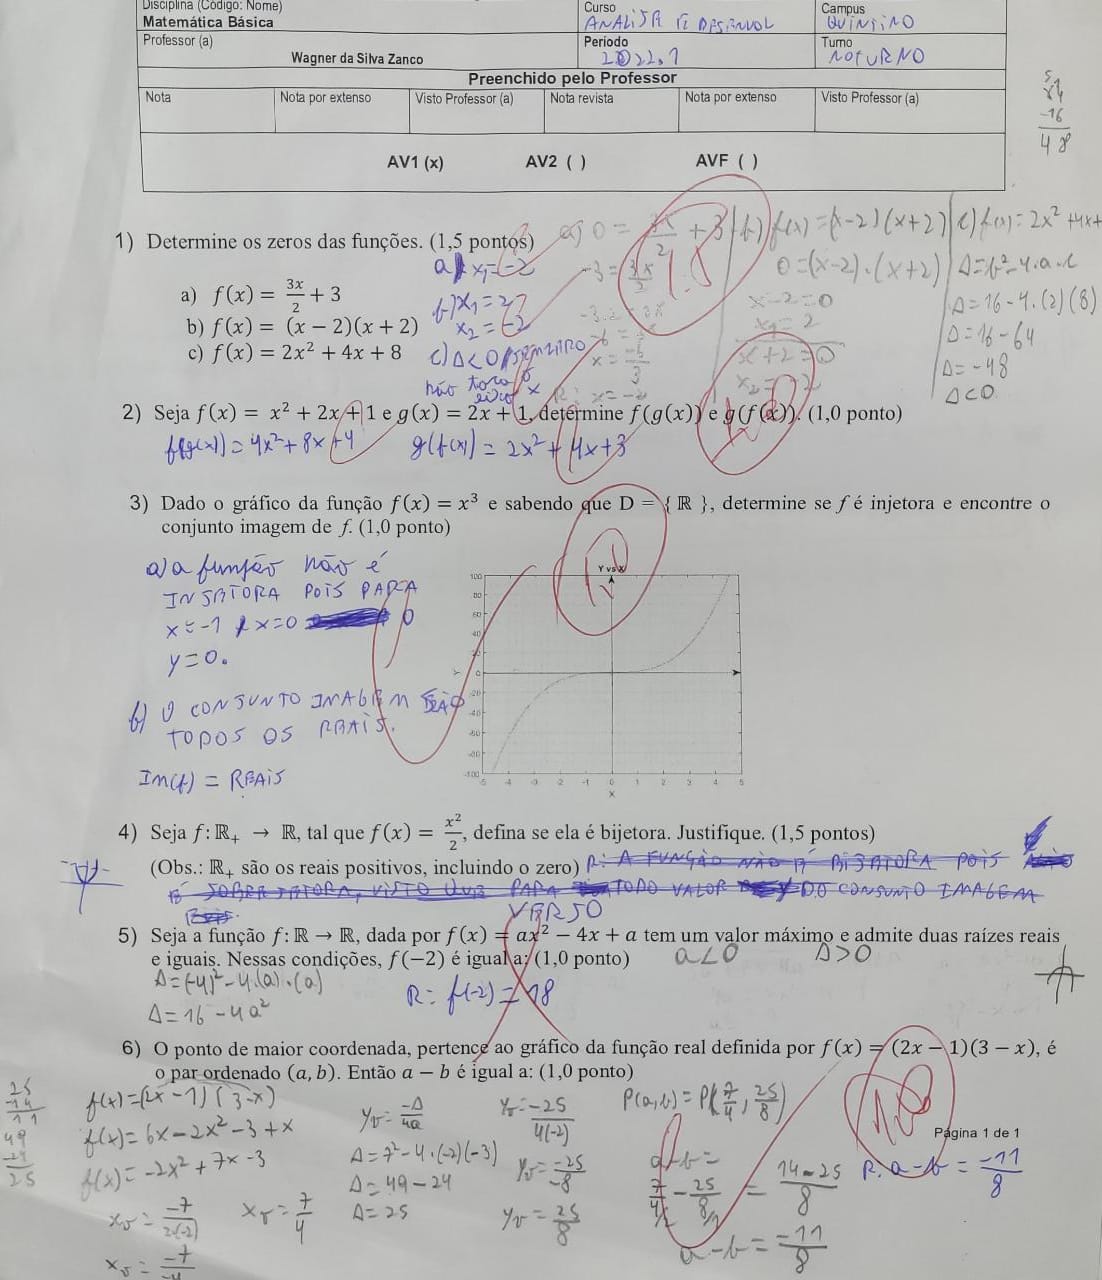 Disciplina (Código: Nome)
Matemática Básica
Curso
ANALISE E DESENVOL
Campus
QUINTINO
Professor (a)
Wagner da Silva Zanco
Período
2022.1
Turno
NOTURNO
Preenchido pelo Professor
Nota
Nota por extenso
Visto Professor (a)
Nota revista
Nota por extenso
Visto Professor (a)
AV1 (x) AV2 ( ) AVF ( )
-16
48
1) Determine os zeros das funções. (1,5 pontos)
a) f(x) = 3x/2 + 3
b) f(x) = (x − 2)(x + 2)
c) f(x) = 2x² + 4x + 8
a) x₁ = -2
b) x₁ = 2
x₂ = -2
c) Δ<0
não toca o
eixo x
a) 0 = 3x/2 + 3
-3 = 3x/2
x = -6/3
R: x = -2
1.5
b) f(x) = (x-2)(x+2)
0 = (x-2).(x+2)
x-2=0
x₁=2
x+2=0
x₂=-2
c) f(x) = 2x² + 4x +
Δ=b²-4.a.c
Δ=16-4.(2)(8)
Δ=16-64
Δ=-48
Δ<0
2) Seja f(x) = x² + 2x + 1 e g(x) = 2x + 1, determine f(g(x)) e g(f(x)). (1,0 ponto)
f(g(x)) = 4x² + 8x + 4 g(f(x)) = 2x² + 4x + 3
1.0
3) Dado o gráfico da função f(x) = x³ e sabendo que D = { ℝ }, determine se f é injetora e encontre o
conjunto imagem de f. (1,0 ponto)
1.0
a) a função não é
INJETORA POIS PARA
x=-1 x=0
y=0.
b) O CONJUNTO IMAGEM SÃO
TODOS OS REAIS.
Im(f) = REAIS
Y vs X
100
80
60
40
20
0
-20
-40
-60
-80
-100
-5 -4 -3 -2 -1 0 1 2 3 4 5
X
4) Seja f: ℝ₊ → ℝ, tal que f(x) = x²/2, defina se ela é bijetora. Justifique. (1,5 pontos)
(Obs.: ℝ₊ são os reais positivos, incluindo o zero) R: A FUNÇÃO NÃO É BIJETORA POIS
É SOBREJETORA, VISTO QUE PARA TODO VALOR DO CONJUNTO IMAGEM
VERSO
5) Seja a função f: ℝ → ℝ, dada por f(x) = ax² − 4x + a tem um valor máximo e admite duas raízes reais
e iguais. Nessas condições, f(−2) é igual a: (1,0 ponto) a<0 Δ>0
Δ=(-4)²-4.(a).(a)
Δ=16-4a²
R: f(-2) = 18
6) O ponto de maior coordenada, pertence ao gráfico da função real definida por f(x) = (2x − 1)(3 − x), é
o par ordenado (a, b). Então a − b é igual a: (1,0 ponto)
1.0
25
14
11
49
24
25
f(x)=(2x-1)(3-x)
f(x)=6x-2x²-3+x
f(x)=-2x²+7x-3
xᵥ=-7/2(-2)
xᵥ=-7/-4
xᵥ=7/4
yᵥ=-Δ/4a
Δ=7²-4.(-2)(-3)
Δ=49-24
Δ=25
yᵥ=-25/4(-2)
yᵥ=-25/-8
yᵥ=25/8
P(a,b)=P(7/4, 25/8)
a-b=
7/4 - 25/8 = 14-25/8
a-b = -11/8
Página 1 de 1
R. a-b = -11/8